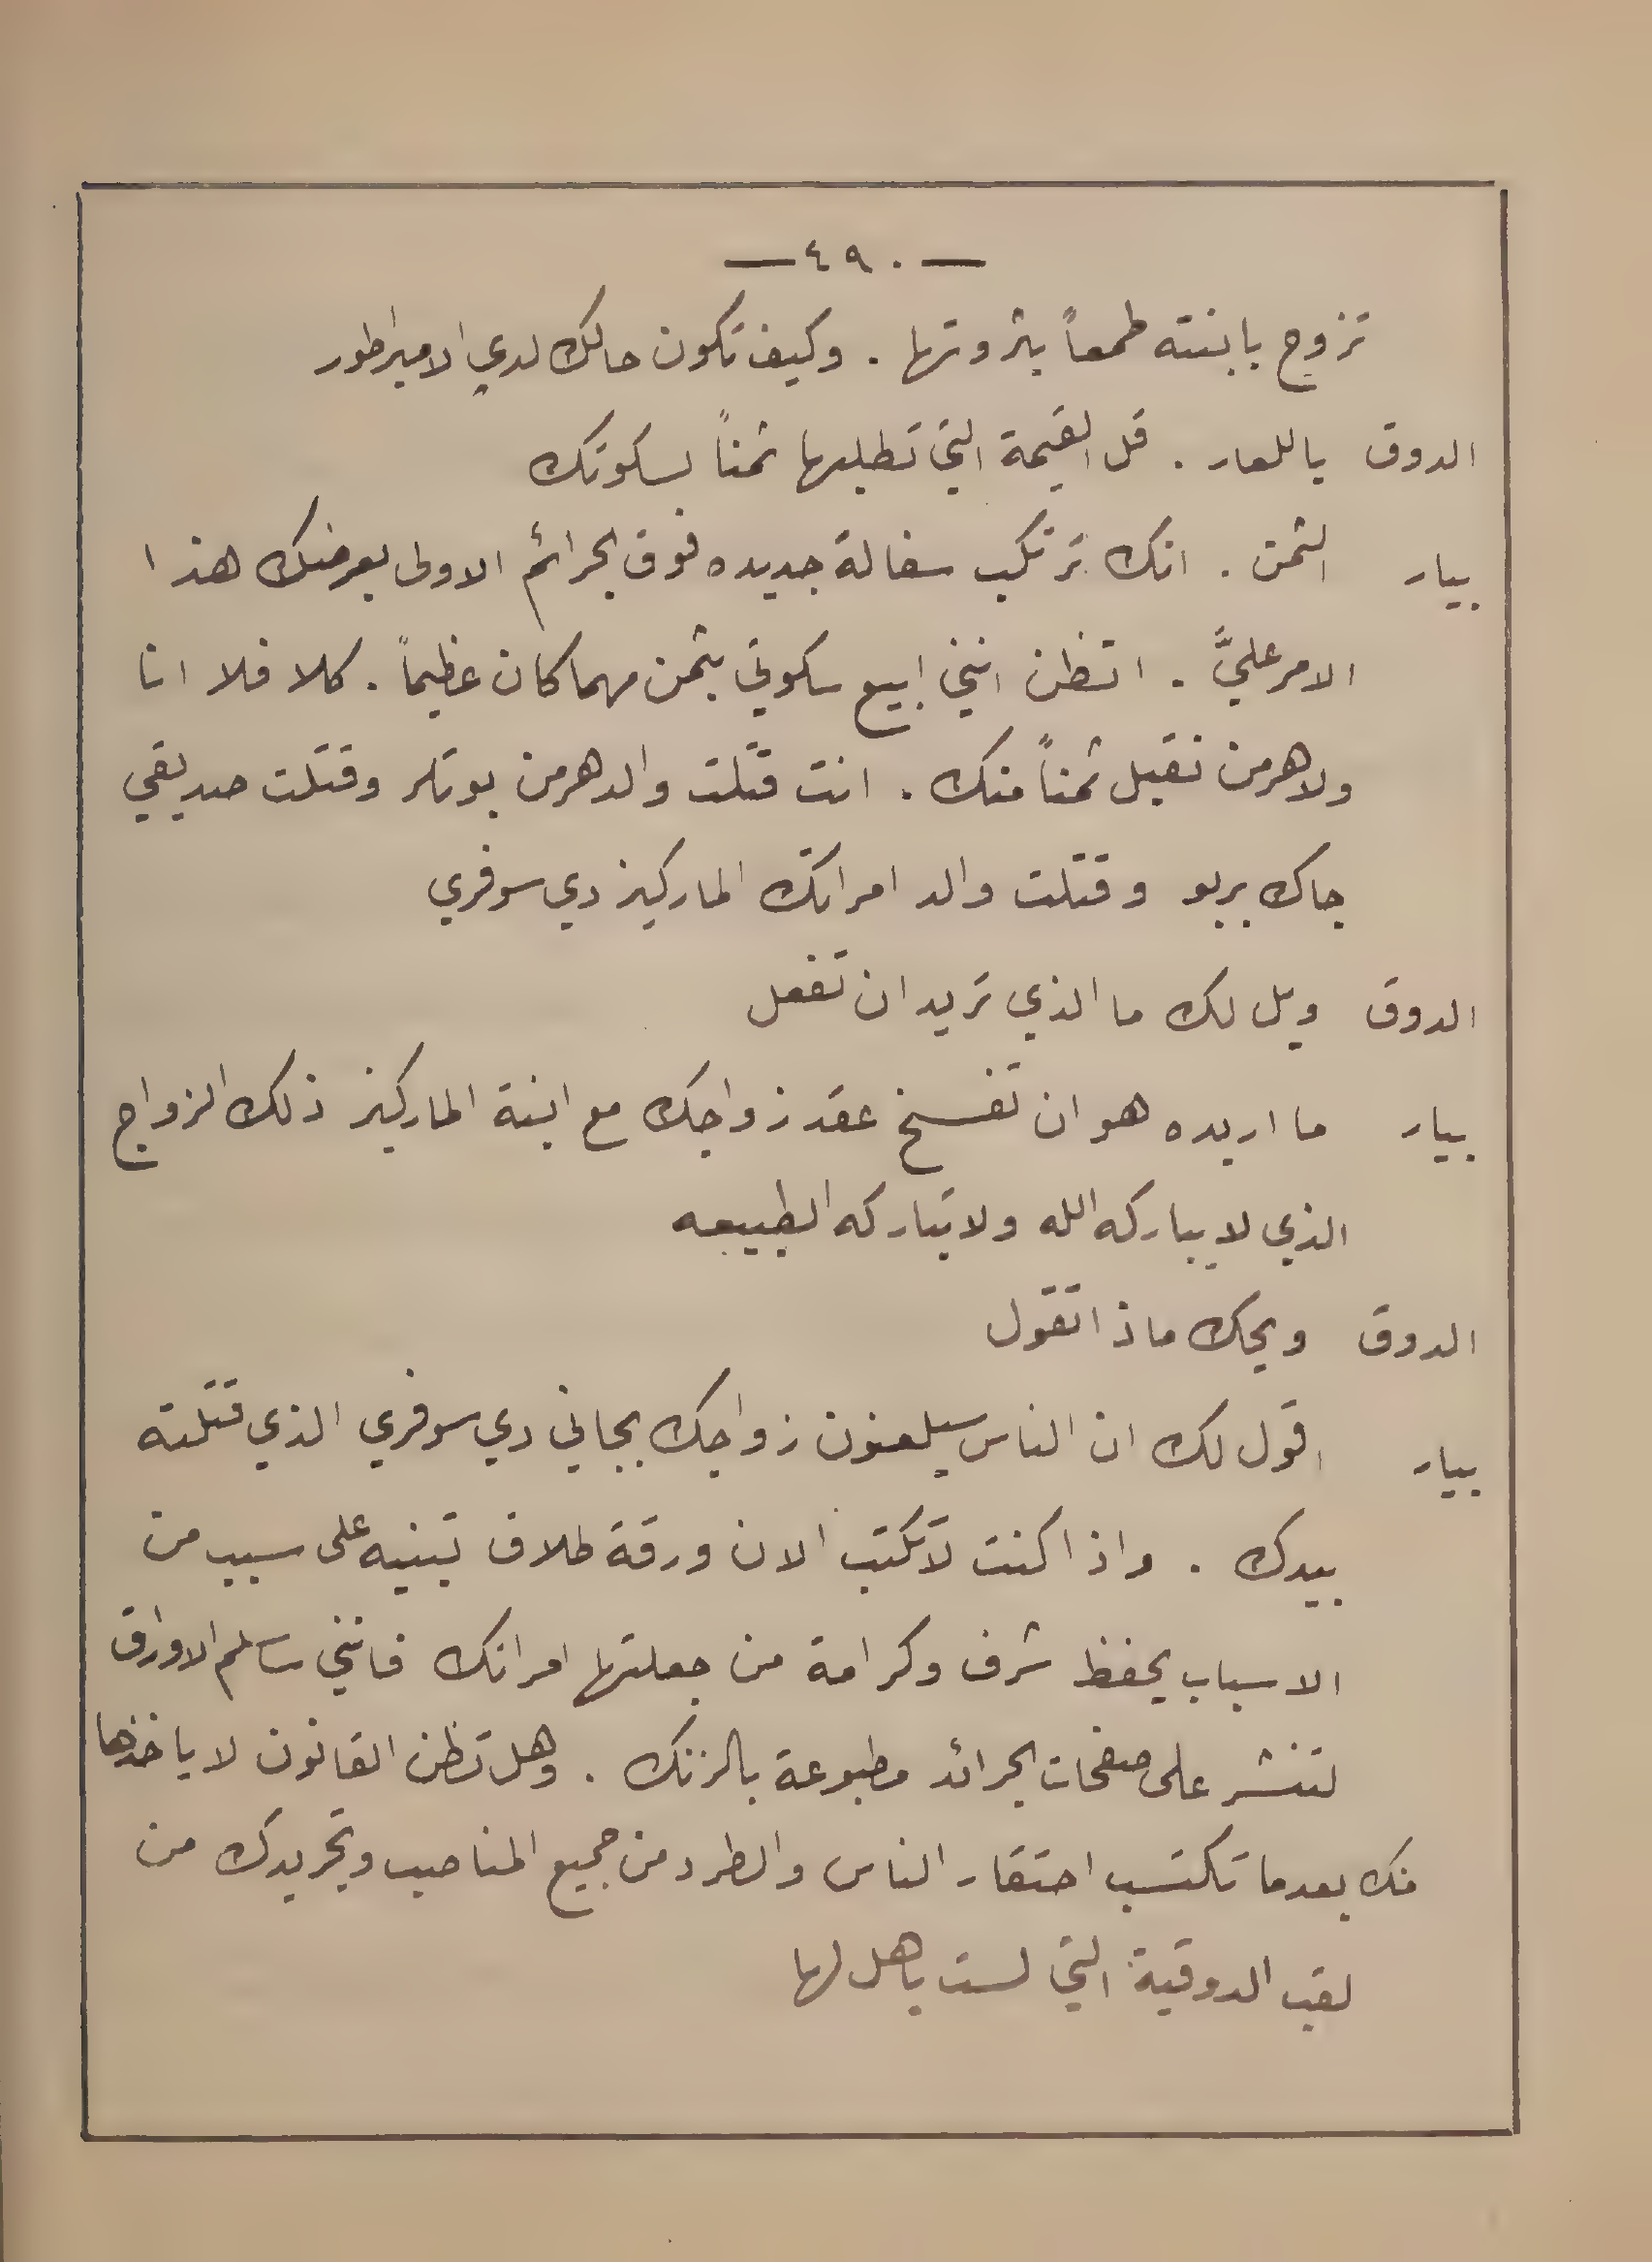 — ٤٩٠ —
تزوج بابنته طمعاً بثروتها . وكيف تكون حالك لدي الامبراطور
الدوق ياللعار . قل القيمة التي تطلبها ثمناً لسكوتك
بيار الثمن . انك ترتكب سفالة جديده فوق الجرائم الاولى بعرضك هذا
الامر عليَّ . اتظن انني ابيع سكوتي بثمن مهما كان عظيماً . كلا فلا انا
ولا هرمن نقبل ثمناً منك . انت قتلت والد هرمن بوتلر وقتلت صديقي
جاك بربو وقتلت والد امراتك الماركيز دي سوفري
الدوق ويل لك ما الذي تريد ان تفعل
بيار ما اريده هو ان تفسخ عقد زواجك مع ابنة الماركيز ذلك الزواج
الذي لا يباركه الله ولا تباركه الطبيعه
الدوق ويحك ماذا تقول
بيار اقول لك ان الناس سيلعنون زواجك بجاني دي سوفري الذي قتلته
بيدك . واذا كنت لا تكتب الان ورقة طلاق تبنيه على سبب من
الاسباب يحفظ شرف وكرامة من جعلتها امراتك فانني ساسلم الاوراق
لتنشر على صفحات الجرائد مطبوعة بالزنك . وهل تظن القانون لا ياخذها
منك بعدما تكتسب احتقار الناس والطرد من جميع المناصب وتجريدك من
لقب الدوقية التي لست باهل لها